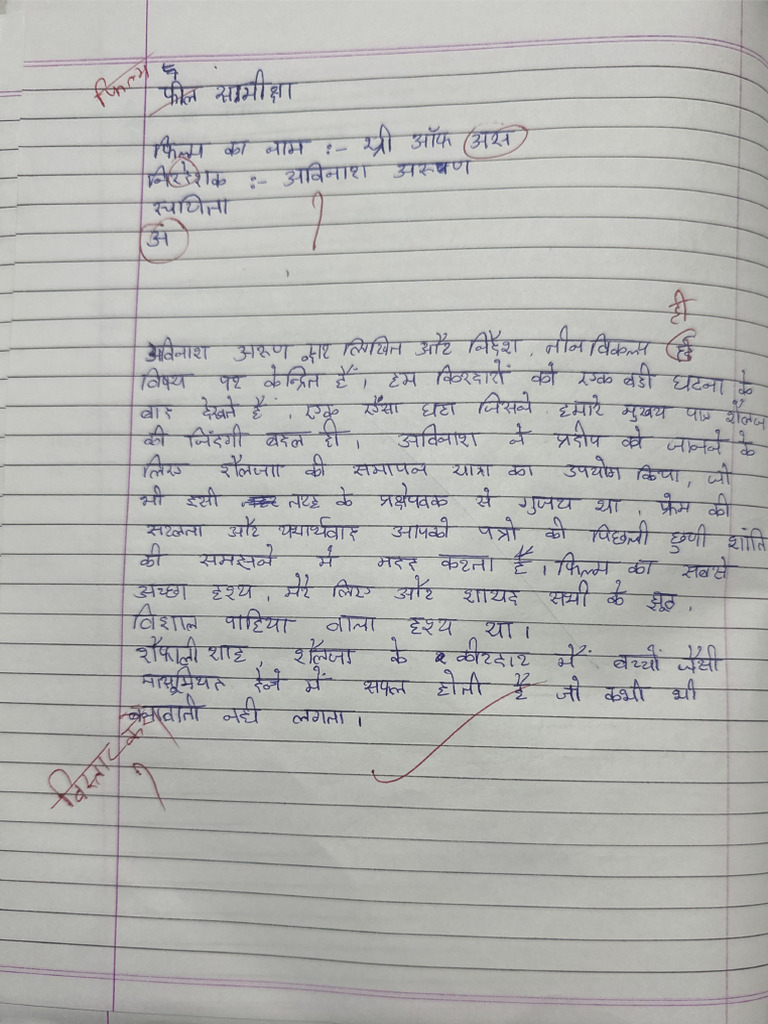 फिल्म
फील समीक्षा
फिल्म का नाम :- थ्री ऑफ अस
निर्देशक :- अविनाश अरुण
रचयिता
अ
ही
अविनाश अरुण द्वार लिखित और निर्देश, तीन विकल्प
विषय पर केन्द्रित हैं, हम किरदारों को एक बडी घटना के
बाद देखते है, एक ऐसा घटा जिसने हमारे मुखय पात्र शैलज
की जिंदगी बदल दी। अविनाश ने प्रदीप को जानने के
लिए शैलजा की समापन यात्रा का उपयोग किया, जो
भी इसी तरह के प्रक्षेपवक्र से गुजय था, फ्रेम की
सरलता और यथार्थवाद आपको पत्रो की पिछली छुपी शांति
की समझने में मदद करता है, फिल्म का सबसे
अच्छा दृश्य, मेरे लिए और शायद सभी के झूठ,
विशाल पाहिया वाला दृश्य था।
शैफाली शाह, शैलजा के कीरदार में बच्चों जैसी
मासूमियत देने में सफल होती है जो कभी भी
बनावाती नही लगता।
विस्तार के